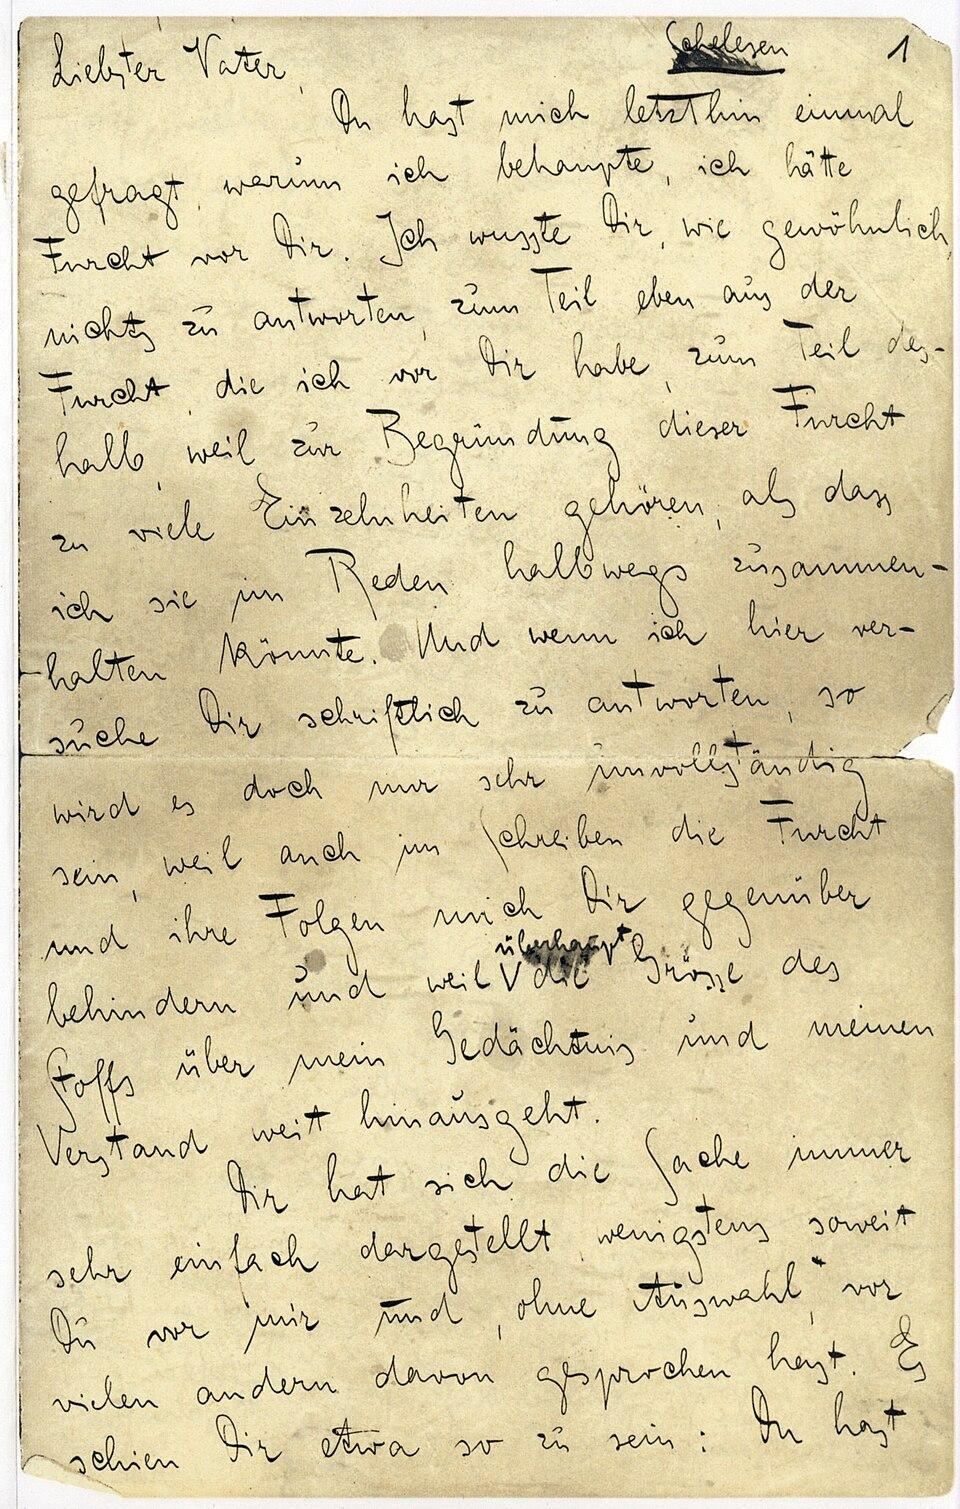 Schelesen 1
Liebster Vater,
Du hast mich letzthin einmal
gefragt, warum ich behaupte, ich hätte
Furcht vor Dir. Ich wusste Dir, wie gewöhnlich,
nichts zu antworten, zum Teil eben aus der
Furcht, die ich vor Dir habe, zum Teil des-
halb, weil zur Begründung dieser Furcht
zu viele Einzelnheiten gehören, als dass
ich sie im Reden halbwegs zusammen-
halten könnte. Und wenn ich hier ver-
suche Dir schriftlich zu antworten, so
wird es doch nur sehr unvollständig
sein, weil auch im Schreiben die Furcht
und ihre Folgen mich Dir gegenüber
überhaupt
behindern und weil V die Grösse des
Stoffs über mein Gedächtnis und meinen
Verstand weit hinausgeht.
Dir hat sich die Sache immer
sehr einfach dargestellt, wenigstens soweit
Du vor mir und, ohne Auswahl, vor
vielen andern davon gesprochen hast. Es
schien Dir etwa so zu sein: Du hast